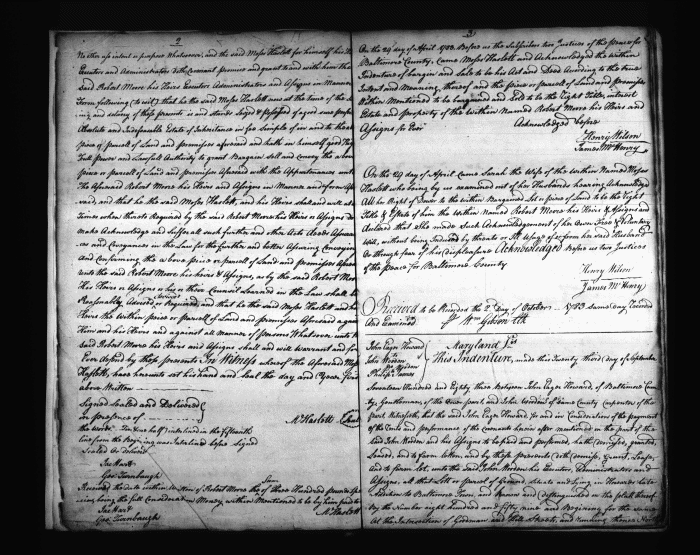 2
No other use intent or purpose Whatsoever, and the said Moses Haslett for himself his Heirs
Executors and Administrators doth Covenant promise and grant to and with him the
said Robert Moore his Heirs Executors Administrators and Assigns in Manner
Form following (to wit) that he the said Moses Haslett now at the time of the
ing and delivery of these presents is and stands seized & possessed of a good sure perfect
Absolute and Indefeasible Estate of Inheritance in Fee Simple of in and to the above
piece or parcel of Land and premises aforesaid and hath in himself good Right
Full power and Lawfull Authority to grant Bargain Sell and Convey the above
piece or parcel of Land and premises Aforesaid with the Appurtenances unto
the Aforesaid Robert Moore his Heirs and Assigns in Manner and form Afore
said, and that he the said Moses Haslett, and his Heirs shall and will at
Times when thereto Required by the said Robert Moore his Heirs or Assigns
make Acknowledge and suffer all such further and other Acts Deeds
ces and Conveyances in the Law for the further and better Assuring Conveying
and Confirming the above piece or parcel of Land and premises Aforesaid
unto the said Robert Moore his heirs & Assigns, as by the said Robert Moore
His Heirs or Assigns or his or their Council Learned in the Law shall be
Reasonably Advised or Required, and that he the said Moses Haslett and his
Heirs the within piece or parcel of Land and premises Aforesaid against
Him and his Heirs and against all manner of persons Whatsoever unto the
said Robert Moore his Heirs and Assigns shall and will warrant and for
Ever defend by these presents In Witness whereof the Aforesaid Moses
Haslett, have hereunto set his Hand and Seal the day and Year first
above Written
Signed Sealed and Delivered
in presence of
M Haslett Seal
the words intirlined in the fifteenth
line from the Begining was Interlined before Signed
Sealed Or deliver'd
Geo: Turnbaugh
Received the date within written of Robert Moore the sum of three Hundred pounds
being the full Consideration Money within Mentioned to be by him paid to
M Haslett
Geo: Turnbaugh
3
On the 29 day of April 1783 Before us the Subscribers two Justices of the peace for
Baltimore County, came Moses Haslett and Acknowledged the within
Indenture of bargain and Sale to be his Act and Deed According to the true
Intent and Meaning thereof and the piece or parcel of Land and premises
Within Mentioned to be bargained and Sold to be the Right Title, interest
Estate and property of the within Named Robert Moore his Heirs and
Assigns for Ever
Acknowledged before
Henry Wilson
James McHenry
On the 29 day of April Came Sarah the Wife of the within Named Moses
Haslett who being by us examined out of her Husbands hearing Acknowledged
All her Right of Dower to the within Bargained Lot or piece of Land to be the Right
Title & Estate of him the Within Named Robert Moore his Heirs & Assigns and
declared that she made such Acknowledgement of her Own Free & Voluntary
Will, without being Induced by threats or Ill Usage of or from her said Husband
Or through fear of his Displeasure Acknowledged Before us two Justices
of the peace for Baltimore County
Henry Wilson
James McHenry
Received to be Recorded the 2d day of October 1783 same day Recorded
And Examined Wm Gibson Clk
John Eager Howard
John Worden
Maryland
This Indenture, made this Twenty third day of September
Seventeen Hundred and Eighty three Between John Eager Howard, of Baltimore Coun
ty, Gentleman, of the One part, and John Worden of same County Carpenter of the
part Witnesseth, that the said John Eager Howard, for and in Consideration of the payment
of the Rents and performance of the Covenants herein after mentioned on the part of the
said John Worden and his Assigns to be paid and performed, hath demised, granted,
Leased, and to farm letten, and by these presents doth demise, Grant, Lease,
and to farm let, unto the said John Worden his Executors, Administrators and
Assigns. All that Lot or parcel of Ground, situate and lying in Howards late
addition to Baltimore Town, and known and distinguished on the plat thereof
by the Number eight hundred and fifty nine and Begining for the same
At the Intersection of Goodman and Hill Streets, and running thence North